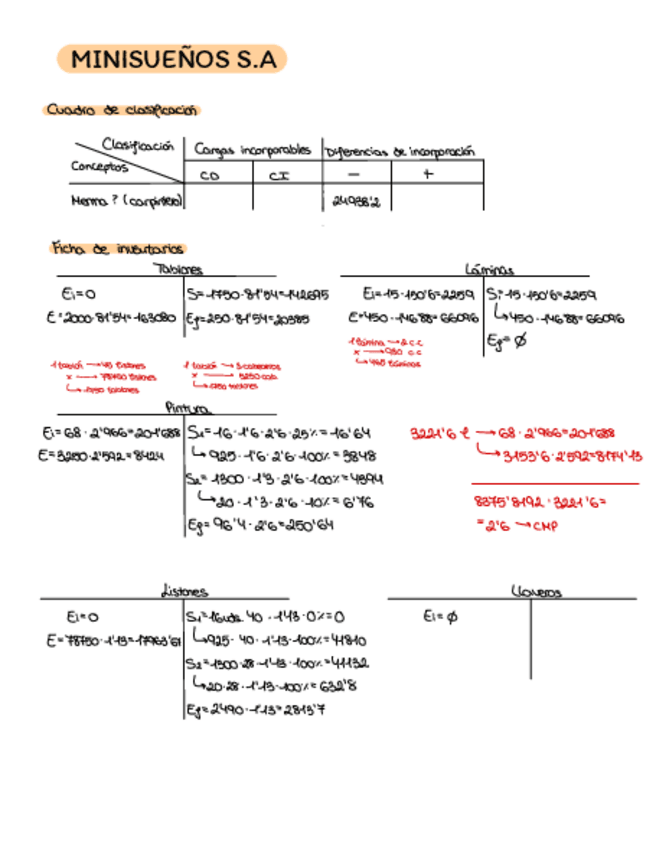 MINISUEÑOS S.A
Cuadro de clasificación
Clasificación
Conceptos
Cargas incorporables
Diferencias de incorporación
CD
CI
-
+
Merma? (carpintero)
24938'2
Ficha de inventarios
Tablones
Ei=0
E=2000·81'54=163080
S=1750·81'54=142695
Ef=250·81'54=20385
1 tablón → 45 listones
x → 78750 listones
↳ 1750 tablones
1 tablón →
x →
Láminas
Ei=15·150'6=2259
E=450·146'88=66096
S1=15·150'6=2259
↳450·146'88=66096
Ef=∅
1 lámina → 2 c.c
x → 930 c.c
↳ 465 láminas
Pintura
Ei=68·2'966=201'688
E=3250·2'592=8424
S1=16·1'6·2'6·25%=16'64
↳925·1'6·2'6·100%=3848
S2=1300·1'3·2'6·100%=4394
↳20·1'3·2'6·10%=6'76
Ef=96'4·2'6=250'64
3221'6 l → 68·2'966=201'688
↳3153'6·2'592=8174'13
8375'8192 · 3221'6=
=2'6 → CMP
Listones
Ei=0
E=78750·1'13=
S1=16uds·40·1'13·0%=0
↳925·40·1'13·100%=41810
S2=1300·28·1'13·100%=41132
↳20·28·1'13·100%=632'8
Ef=2490·1'13=2813'7
Llaveros
Ei=∅